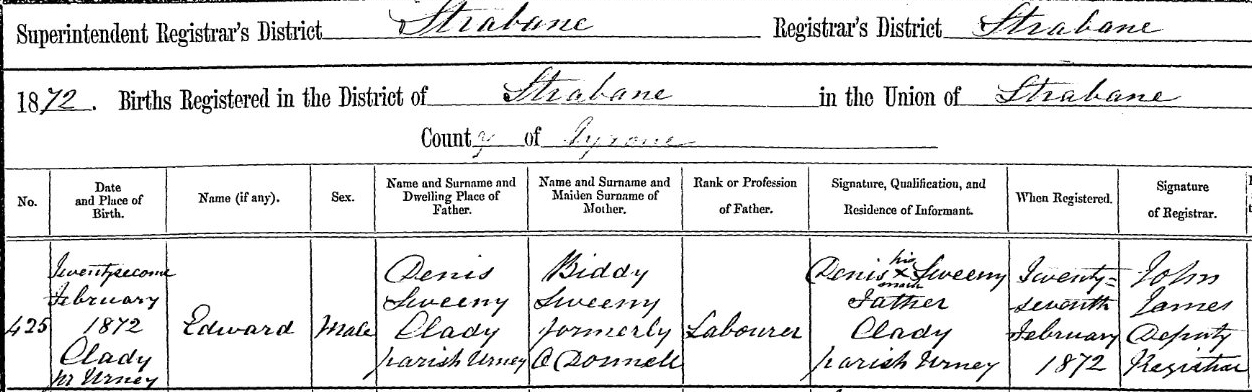 Superintendent Registrar's District Strabane Registrar's District Strabane
1872. Births Registered in the District of Strabane in the Union of Strabane
County of Tyrone
No.
Date
and Place of
Birth.
Name (if any).
Sex.
Name and Surname and
Dwelling Place of
Father.
Name and Surname and
Maiden Surname of
Mother.
Rank or Profession
of Father.
Signature, Qualification, and
Residence of Informant.
When Registered.
Signature
of Registrar.
425
Twentysecond
February
1872
Clady
pr Urney
Edward
Male
Denis
Sweeny
Clady
parish Urney
Biddy
Sweeny
formerly
O Donnell
Labourer
his
Denis x Sweeny
mark
Father
Clady
parish Urney
Twenty=
seventh
February
1872
John
James
Deputy
Registrar